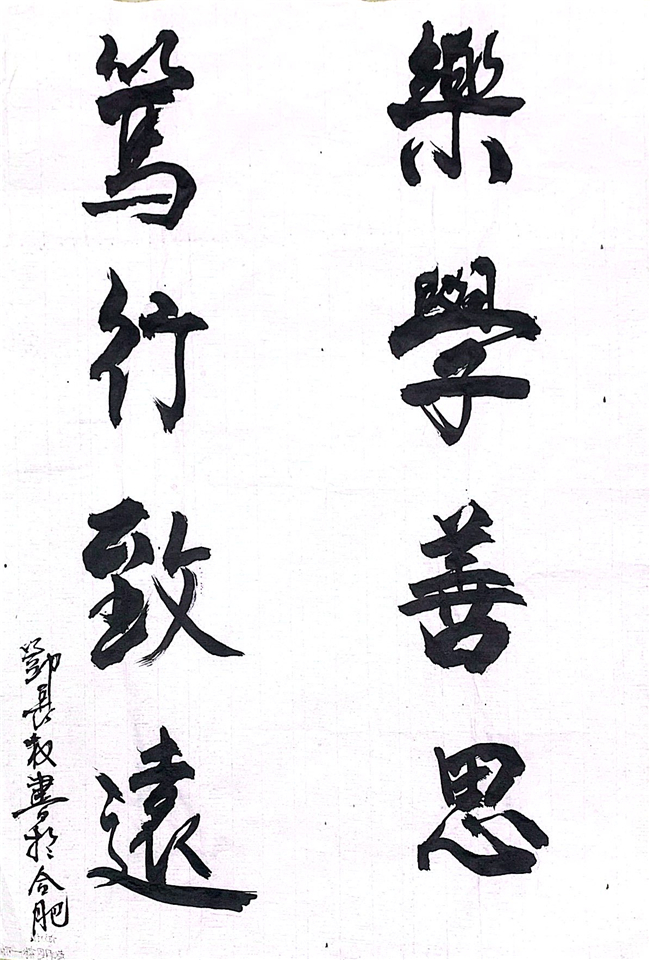 樂學善思
篤行致遠
書於合肥